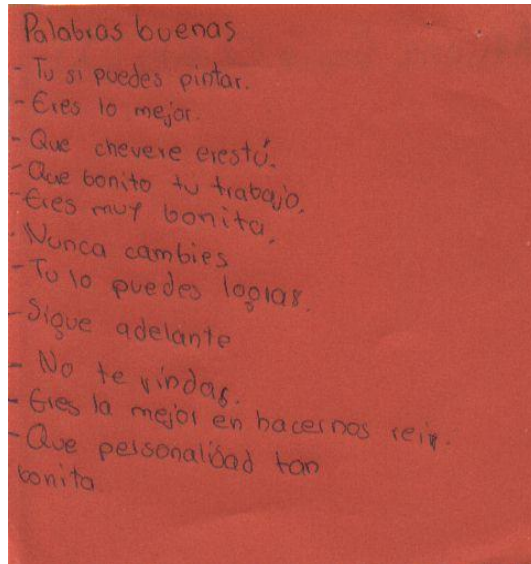 Palabras buenas
- Tu si puedes pintar.
- Eres lo mejor.
- Que chevere erestú.
- Que bonito tu trabajo.
- Eres muy bonita.
. Nunca cambies
- Tu lo puedes lograr.
- Sigue adelante
- No te rindas.
- Eres la mejor en hacernos reir.
- Que personalidad tan
bonita.